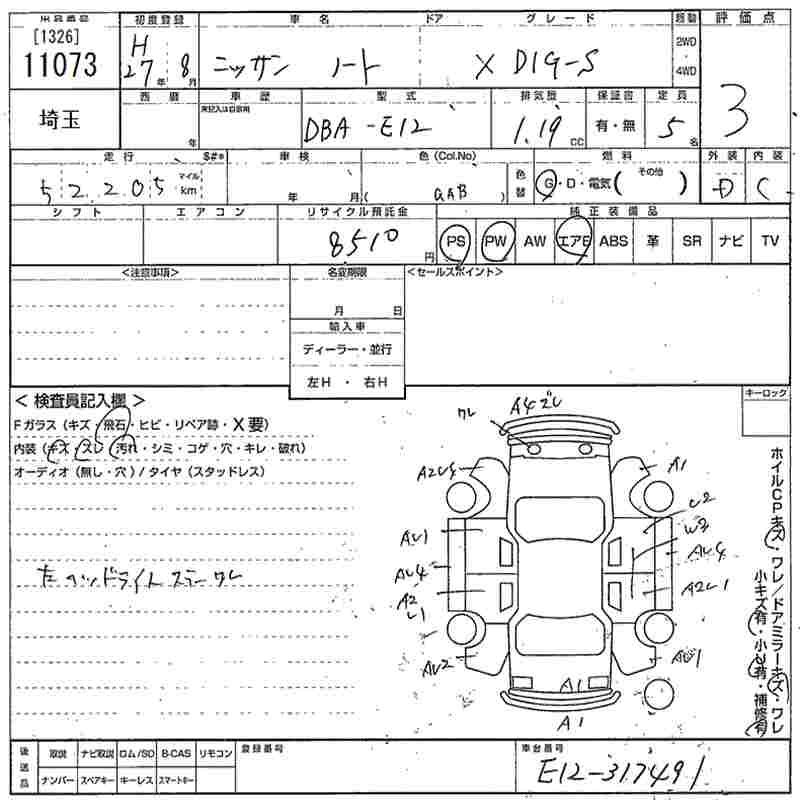 [1326]
11073
初度登録
H
27 年 8 月
車名 ドア グレード
ニッサン ノート X DIG-S
駆動
2WD
4WD
評価点
3
埼玉
西暦
年
車歴
未記入は自家用
型式
DBA-E12
排気量
1.19 CC
保証書
有・無
定員
5 名
走行 $#*
52205 マイル km
車検
年 月
色(Col.No)
( GAB )
色替
燃料
G・D・電気( その他 )
外装 内装
D C
シフト
エアコン
リサイクル預託金
8510 円
純正装備品
PS PW AW エアB ABS 革 SR ナビ TV
<注意事項>
名変期限
月 日
輸入車
ディーラー・並行
左H・右H
<セールスポイント>
<検査員記入欄>
Fガラス(キズ・飛石・ヒビ・リペア跡・X要)
内装(キズ・スレ・汚れ・シミ・コゲ・穴・キレ・破れ)
オーディオ(無し・穴)/タイヤ(スタッドレス)
左ヘッドライトステーワレ
キーロック
ワレ A4ズレ
A2U4 A1
U2
W3
AU1 AU4
AU4 A2U1
A2
U1
AU2 AU1
A1
A1
ホイルCPキズ・ワレ/ドアミラーキズ・ワレ
小キズ有・小U有・補修有
後送品
取説 ナビ取説 ロム/SD B-CAS リモコン
ナンバー スペアキー キーレス スマートキー
登録番号
車台番号
E12-317491